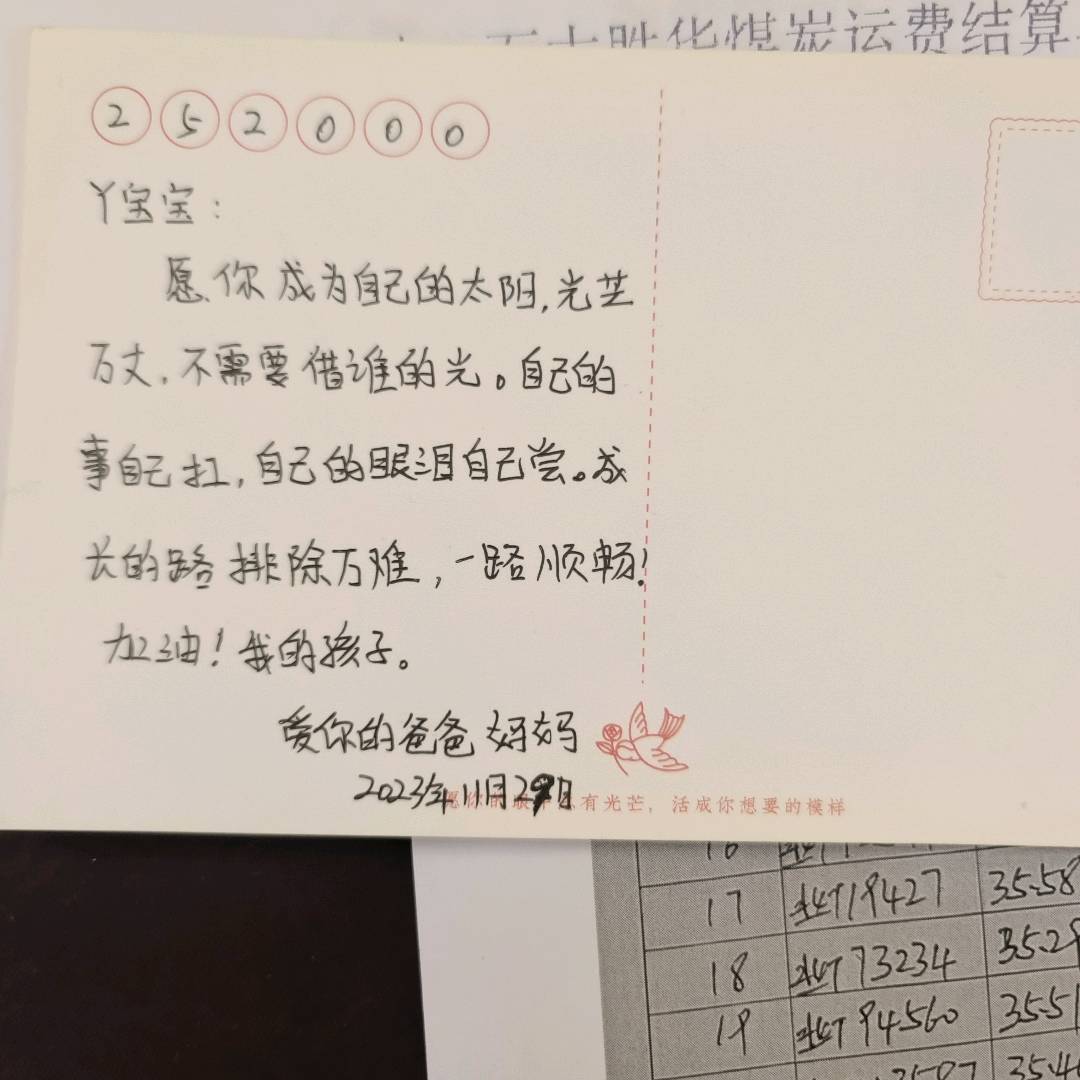 胜华煤炭运费结算
252000
丫宝宝：
愿你成为自己的太阳，光芒
万丈，不需要借谁的光。自己的
事自己扛，自己的眼泪自己尝。成
长的路排除万难，一路顺畅！
加油！我的孩子。
爱你的爸爸妈妈
2023年11月29日
有光芒，活成你想要的模样
16
17 19427 35.58
18 73234 35.2
19 94560 35.51
35.4